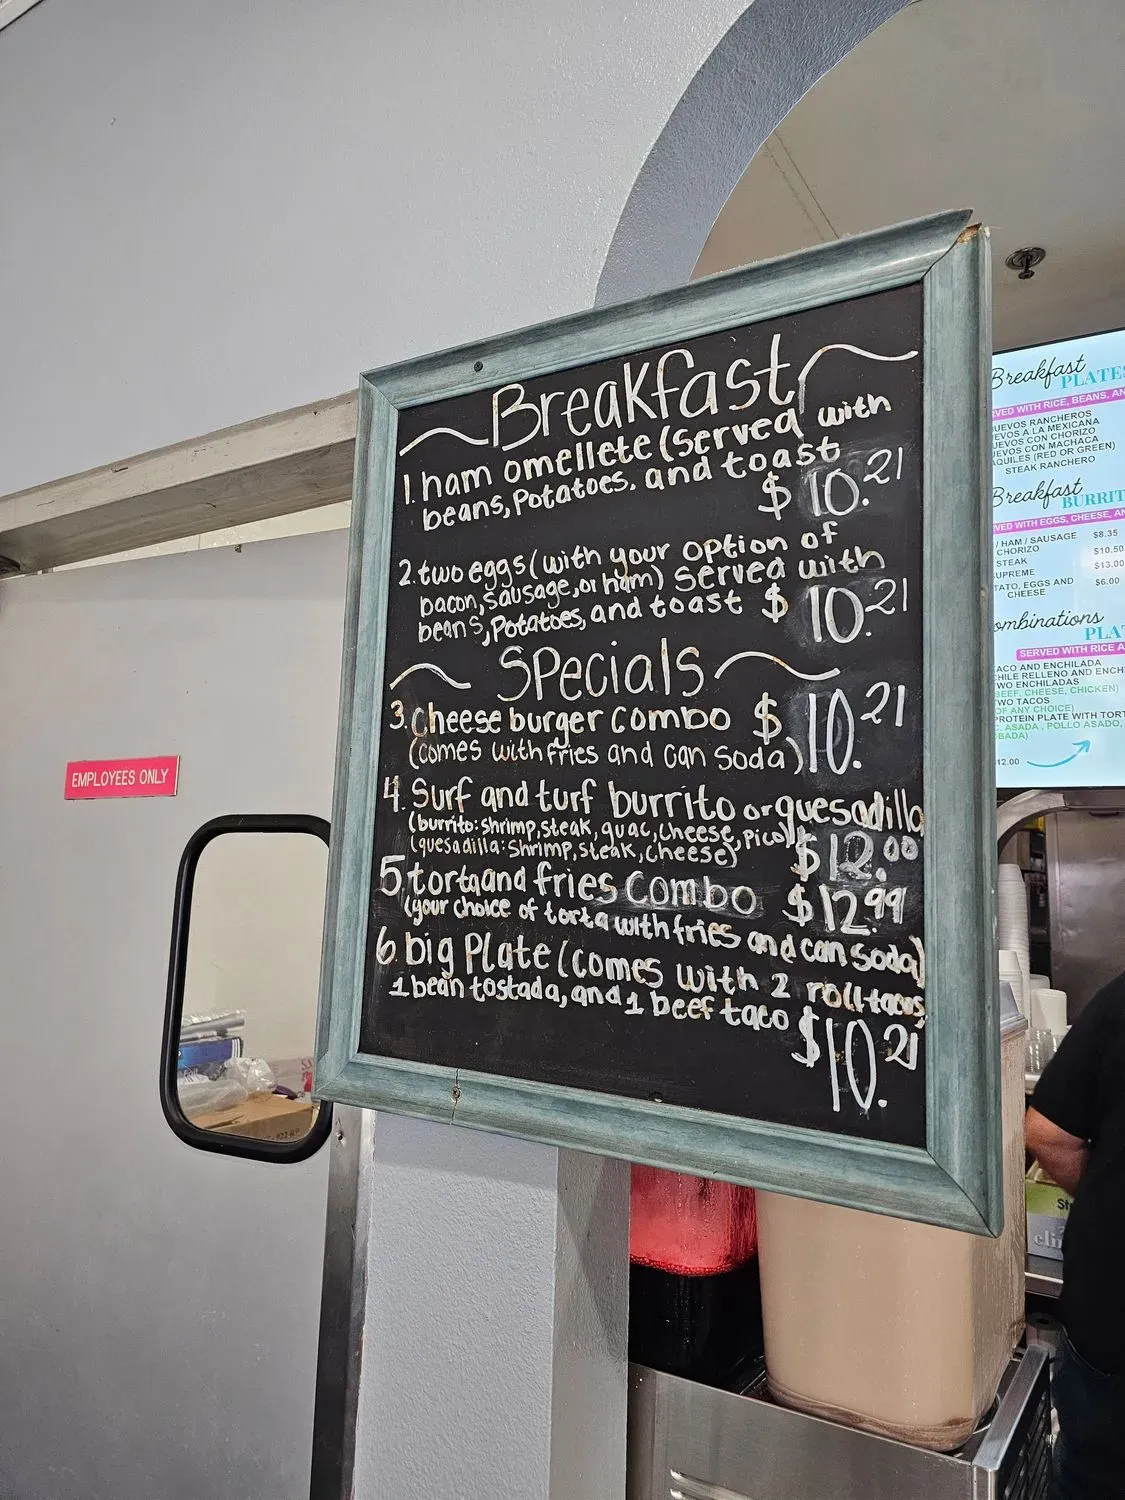 Breakfast
1. ham omellete (Served with
beans, Potatoes, and toast
$10.21
2. two eggs (with your option of
bacon, sausage, or ham) served with
beans, Potatoes, and toast $10.21
Specials
3. Cheese burger combo $10.21
(comes with fries and can soda)
4. Surf and turf burrito or quesadilla
(burrito: shrimp, steak, guac, cheese, pico)
(quesadilla: shrimp, steak, cheese)
$12.00
5. torta and fries combo $12.99
(your choice of torta with fries and can soda)
6. big Plate (comes with 2 roll tacos,
1 bean tostada, and 1 beef taco
$10.21
EMPLOYEES ONLY
Breakfast
PLATES
RVED WITH RICE, BEANS, AN
UEVOS RANCHEROS
EVOS A LA MEXICANA
UEVOS CON CHORIZO
EVOS CON MACHACA
AQUILES (RED OR GREEN)
STEAK RANCHERO
Breakfast
BURRIT
VED WITH EGGS, CHEESE, AN
/ HAM / SAUSAGE $8.35
CHORIZO
STEAK $10.50
UPREME $13.00
TATO, EGGS AND $6.00
CHEESE
ombinations
PLA
SERVED WITH RICE A
TACO AND ENCHILADA
CHILE RELLENO AND ENCH
TWO ENCHILADAS
BEEF, CHEESE, CHICKEN)
TWO TACOS
OF ANY CHOICE)
PROTEIN PLATE WITH TORT
C. ASADA, POLLO ASADO,
OBADA)
12.00